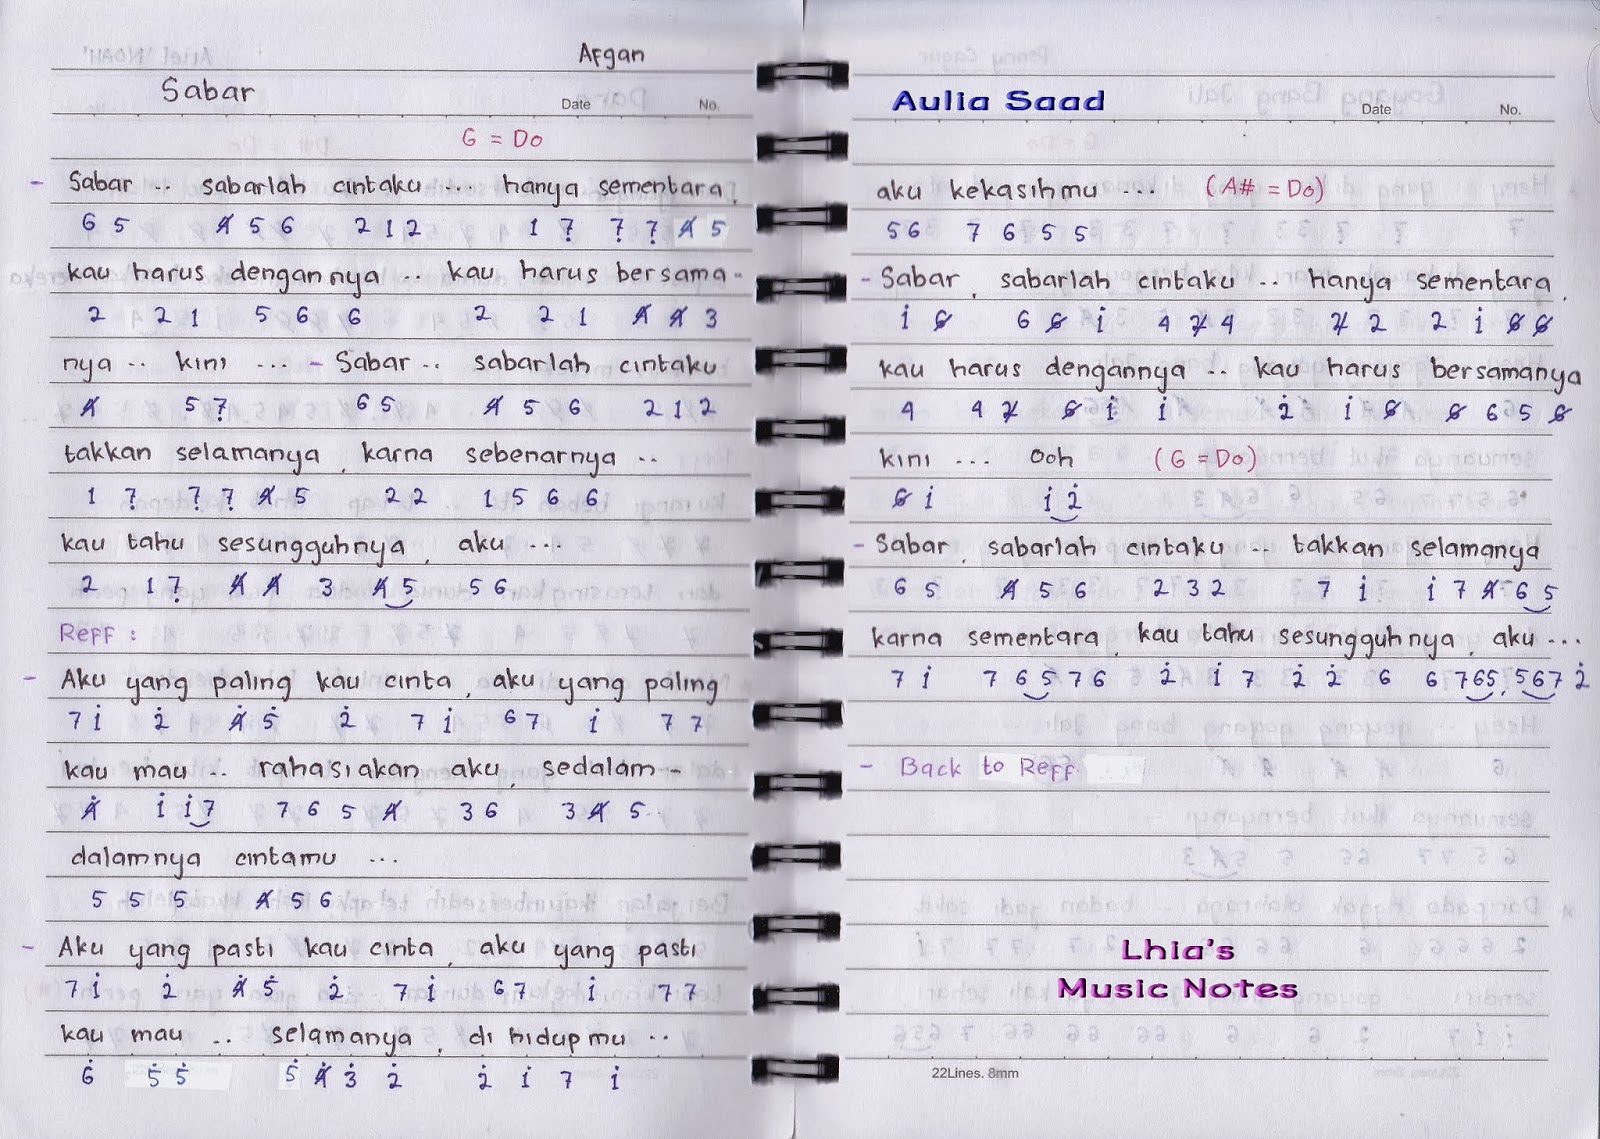 Afgan
Sabar
Date No.
G = Do
- Sabar .. sabarlah cintaku ... hanya sementara,
6 5 4̸ 5 6 2 1 2 1 7̣ 7̣ 7̣ 4̸ 5
kau harus dengannya .. kau harus bersama-
2 2 1 5 6 6 2 2 1 4̸ 4̸ 3
nya .. kini ... - Sabar .. sabarlah cintaku
4̸ 5 7̣ 6 5 4̸ 5 6 2 1 2
takkan selamanya, karna sebenarnya ..
1 7̣ 7̣ 7̣ 4̸ 5 2 2 1 5 6 6
kau tahu sesungguhnya, aku ...
2 1 7̣ 4̸ 4̸ 3 4̸ 5 5 6
Reff :
- Aku yang paling kau cinta, aku yang paling
7 1̇ 2̇ 4̸̇ 5̇ 2̇ 7 1̇ 6 7 1̇ 7 7
kau mau .. rahasiakan aku, sedalam-
4̸̇ 1̇ 1̇ 7 7 6 5 4̸ 3 6 3 4̸ 5
dalamnya cintamu ...
5 5 5 4̸ 5 6
- Aku yang pasti kau cinta, aku yang pasti
7 1̇ 2̇ 4̸̇ 5̇ 2̇ 7 1̇ 6 7 1̇ 7 7
kau mau .. selamanya, di hidupmu ..
6̇ 5̇ 5̇ 5̇ 4̸̇ 3̇ 2̇ 2̇ 1̇ 7 1̇
Aulia Saad
Date No.
aku kekasihmu ... (A# = Do)
5 6 7 6 5 5
- Sabar, sabarlah cintaku .. hanya sementara,
1̇ 6̸ 6 6̸ 1̇ 4 2̸ 4 2̸ 2 2 1̇ 6̸ 6̸
kau harus dengannya .. kau harus bersamanya
4 4 2̸ 6̸ 1̇ 1̇ 2̇ 1̇ 6̸ 6̸ 6 5 6̸
kini ... Ooh (G = Do)
6̸ 1̇ 1̇ 2̇
- Sabar, sabarlah cintaku .. takkan selamanya
6 5 4̸ 5 6 2 3 2 7 1̇ 1̇ 7 4̸ 6 5
karna sementara, kau tahu sesungguhnya, aku ...
7 1̇ 7 6 5 7 6 2̇ 1̇ 7 2̇ 2̇ 6 6 7 6 5, 5 6 7 2̇
- Back to Reff ...
Lhia's
Music Notes
22Lines. 8mm